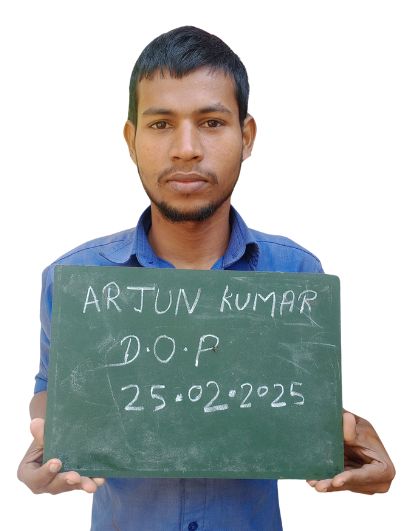 ARJUN KUMAR
D.O.P
25.02.2025